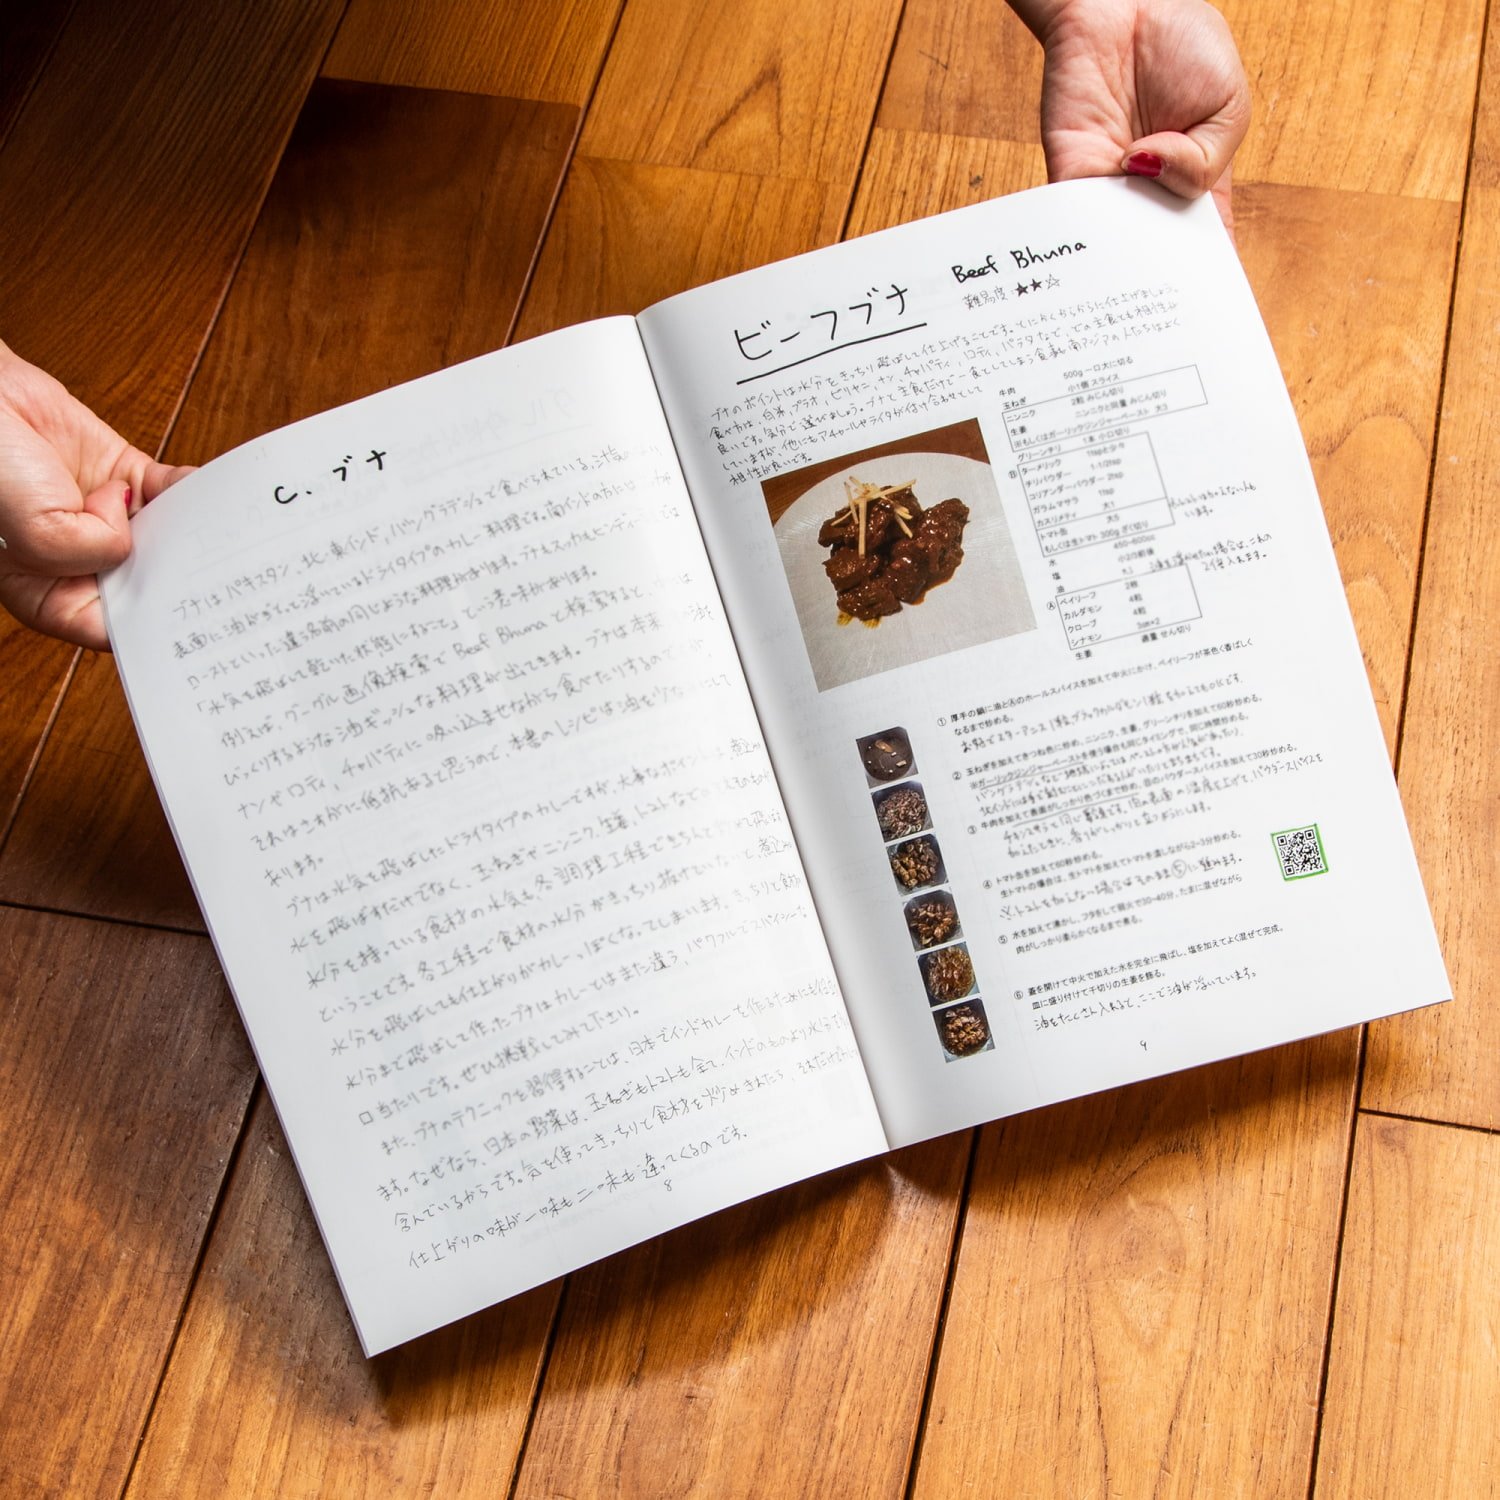 C. ブナ
ブナはパキスタン、北・東インド、バングラデシュで食べられている、汁気のない
表面に油がじとっと浮いているドライタイプのカレー料理です。南インドの方には
ローストといった違う名前の同じような料理があります。ブナもスッカもヒンディー
「水気を飛ばして乾いた状態にすること」という意味があります。
例えば、グーグル画像検索で Beef Bhuna と検索すると、
びっくりするような油ギッシュな料理が出てきます。ブナは本来
ナンやロティ、チャパティに吸い込ませながら食べたりするのですが、
それはさすがに抵抗あると思うので、本書のレシピは油を少なめにして
あります。
ブナは水気を飛ばしたドライタイプのカレーですが、大事なポイントは、煮込み
水を飛ばすだけでなく、玉ねぎやニンニク、生姜、トマトなどの
水分を持っている食材の水気も、各調理工程できちんと炒めて飛ばす
ということです。各工程で食材の水分がきっちり抜けていないと、煮込み
水分を飛ばしても仕上がりがカレーっぽくなってしまいます。きっちりと食材
水分まで飛ばして作ったブナはカレーとはまた違う、パワフルでスパイシーな
口当たりです。ぜひ挑戦してみて下さい。
また、ブナのテクニックを習得することは、日本でインドカレーを作るためにも
ます。なぜなら、日本の野菜は、玉ねぎもトマトも全て、インドのものより水分を
含んでいるからです。気を使ってきっちりと食材を炒めきれたら、それだけで
仕上がりの味が一味も二味も違ってくるのです。
8
Beef Bhuna
ビーフブナ
難易度 ★★☆
ブナのポイントは水分をきっちり飛ばして仕上げることです。とにかくからからに仕上げましょう。
食べ方は、白米、プラオ、ビリヤニ、ナン、チャパティ、ロティ、パラタなど、どの主食とも相性が
良いです。気分で選びましょう。ブナと主食だけで一食としてしまう食事も南アジアの人たちはよく
していますが、他にもアチャールやライタが付け合わせとして
相性が良いです。
牛肉 500g 一口大に切る
玉ねぎ 小1個 スライス
ニンニク 2粒 みじん切り
生姜 ニンニクと同量 みじん切り
※もしくはガーリックジンジャーペースト 大3
グリーンチリ 1本 小口切り
Ⓑ ターメリック 1tspと少々
チリパウダー 1-1/2tsp
コリアンダーパウダー 2tsp
ガラムマサラ 1tsp
カスリメティ 大1
トマト缶 大5
もしくは生トマト 300g ざく切り
います。
水 450~600cc
塩 小2/3前後
油 大3
2倍入れます。
Ⓐ ベイリーフ 2枚
カルダモン 4粒
クローブ 4粒
シナモン 3cm×2
生姜 適量 せん切り
① 厚手の鍋に油とⒶのホールスパイスを加えて中火にかけ、ベイリーフが茶色く香ばしく
なるまで炒める。
お好でスターアニス1粒、ブラックカルダモン1粒を加えてもOKです
② 玉ねぎを加えてきつね色に炒め、ニンニク、生姜、グリーンチリを加えて60秒炒める。
※ガーリックジンジャーペーストを使う場合も同じタイミングで、同じ時間炒める。
③ 牛肉を加えて表面がしっかり色づくまで炒め、Ⓑのパウダースパイスを加えて30秒炒める。
チキンスカっと同じ要領です。肉の表面の温度を上げて、パウダースパイスを
加えたときに、香りがしっかりと立つようにします。
④ トマト缶を加えて60秒炒める。
生トマトの場合は、生トマトを加えてトマトを潰しながら2~3分炒める。
※トマトを加えない場合はそのまま⑤に進みます。
⑤ 水を加えて沸かし、フタをして弱火で30~40分、たまに混ぜながら
肉がしっかり柔らかくなるまで煮る。
⑥ 蓋を開けて中火で加えた水を完全に飛ばし、塩を加えてよく混ぜて完成。
皿に盛り付けて千切りの生姜を飾る。
油をたくさん入れると、ここで油が浮いています。
9